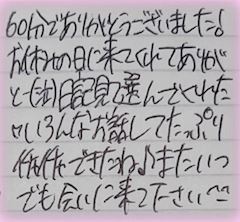 60分でありがとうございました!
お休みの日に来てくれてありが
と〜(祝)日記見て選んでくれた
いろんなお話してたっぷり
できたね♪またいつ
でも会いに来て下さい^^